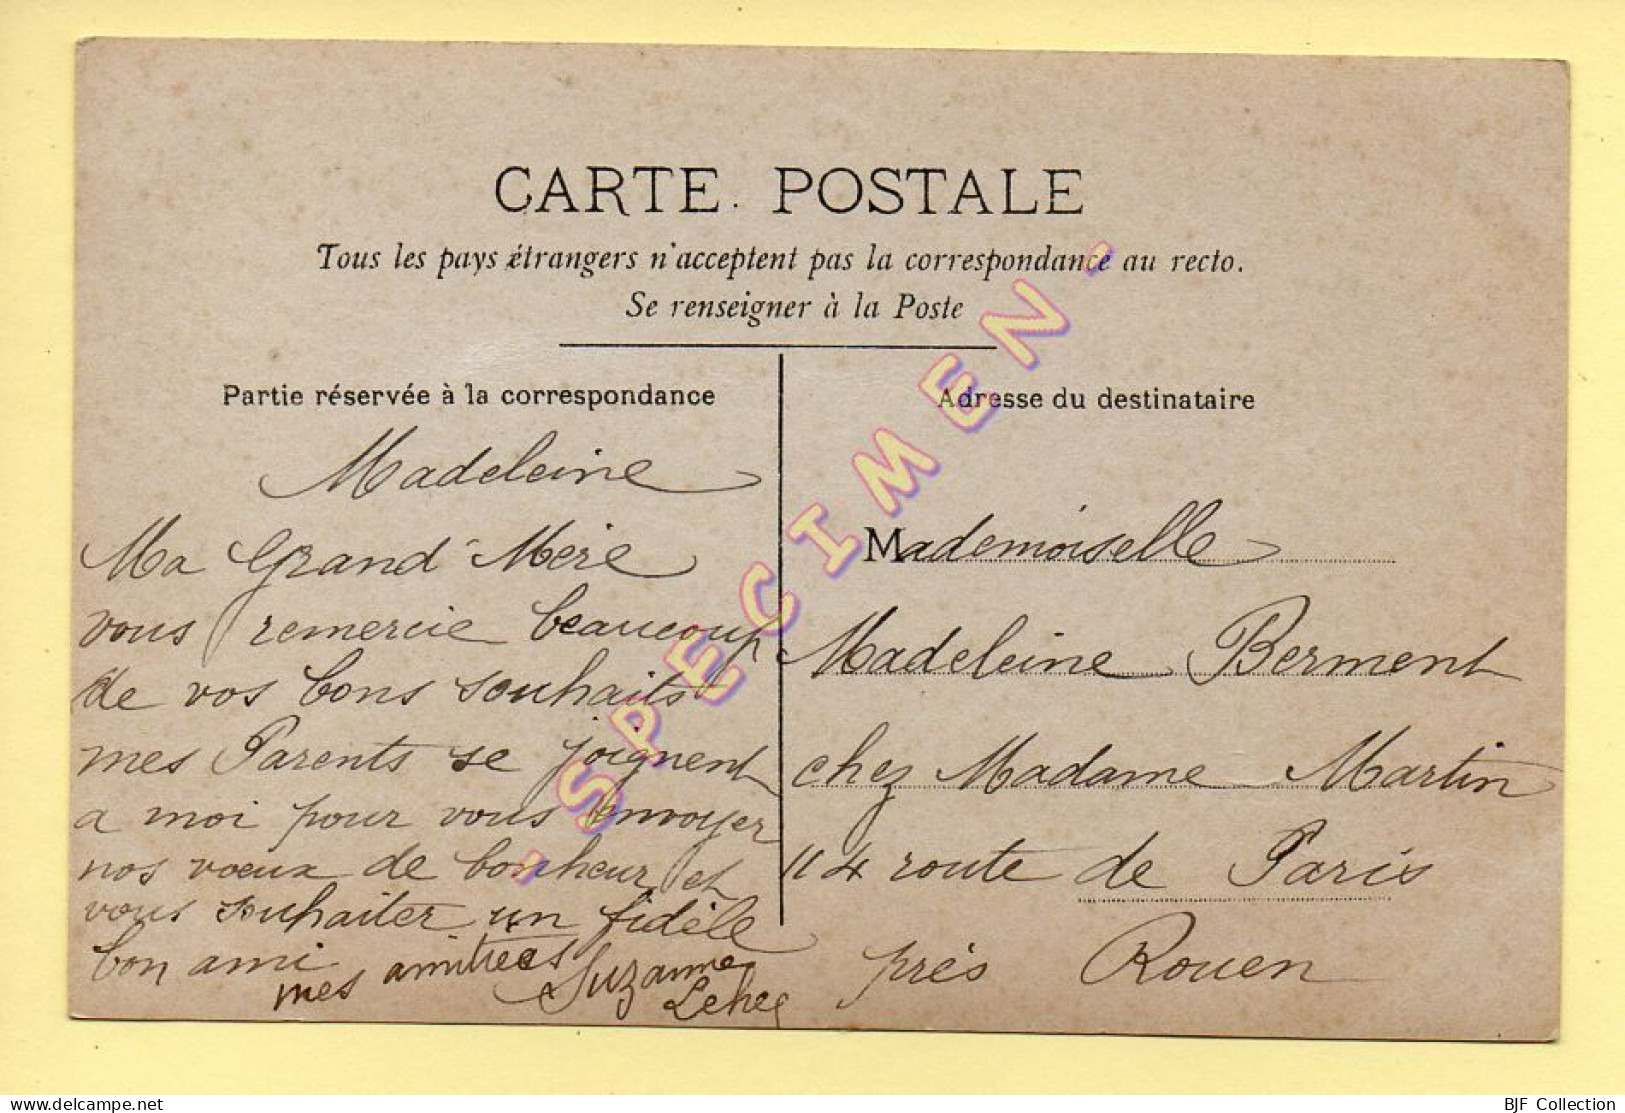 CARTE POSTALE
Tous les pays étrangers n'acceptent pas la correspondance au recto.
Se renseigner à la Poste
Partie réservée à la correspondance
Madeleine
Ma Grand-Mère
vous remercie beaucoup
de vos bons souhaits
mes Parents se joignent
a moi pour vous envoyer
nos vœux de bonheur et
vous souhaiter un fidèle
bon ami
mes amitiées Suzanne
Adresse du destinataire
Mademoiselle
Madeleine Berment
chez Madame Martin
114 route de Paris
près Rouen
- SPECIMEN -
www.delcampe.net
BJF Collection